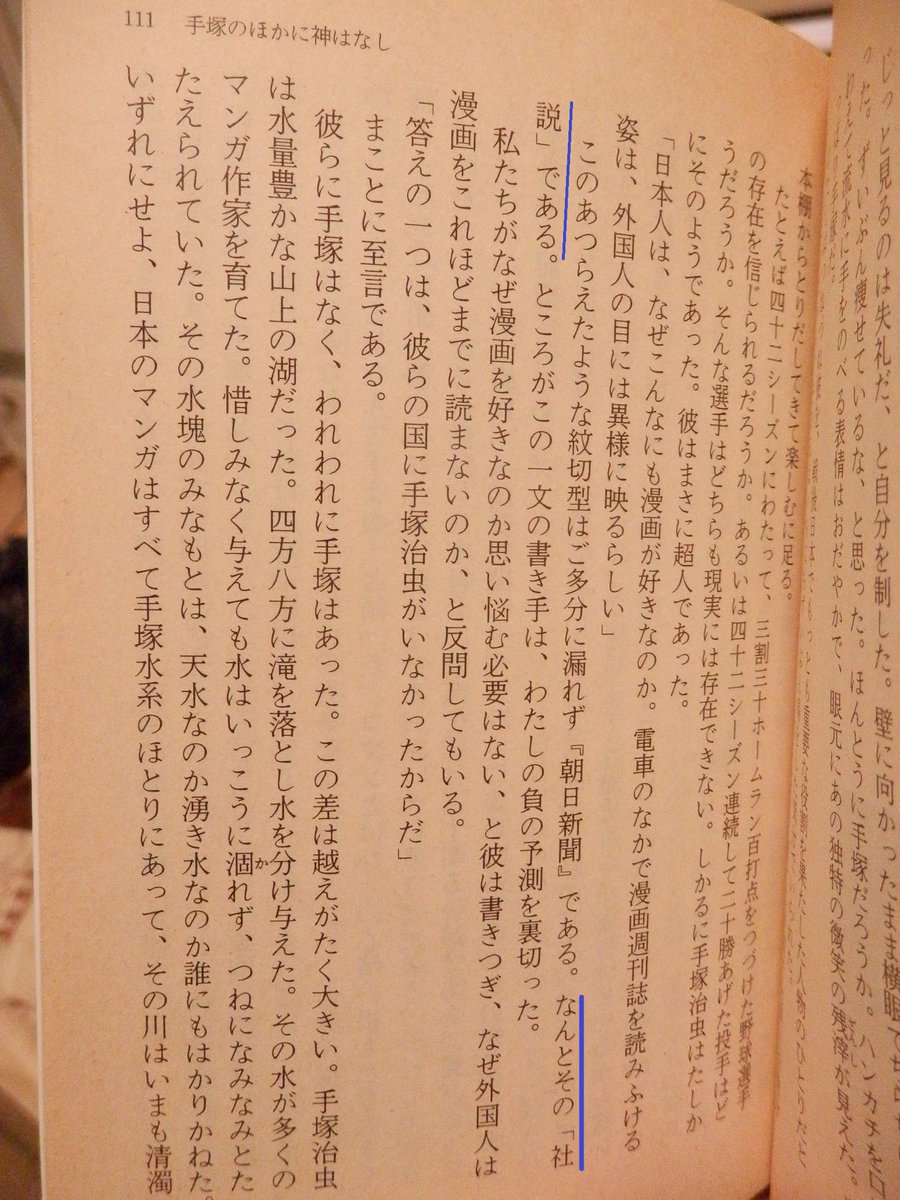 111 手塚のほかに神はなし
じっと見るのは失礼だ、と自分を制した。壁に向かったまま横眼で
った。ずいぶん痩せているな、と思った。ほんとうに手塚だろうか。ハンカチを口
流水に手をのべる表情はおだやかで、眼元にあの独特の微笑の残滓が見えた。
本棚からとりだしてきて楽しむに足る。
たとえば四十二シーズンにわたって、三割三十ホームラン百打点をつづけた野球選手
の存在を信じられるだろうか。あるいは四十二シーズン連続して二十勝あげた投手はど
うだろうか。そんな選手はどちらも現実には存在できない。しかるに手塚治虫はたしか
にそのようであった。彼はまさに超人であった。
「日本人は、なぜこんなにも漫画が好きなのか。電車のなかで漫画週刊誌を読みふける
姿は、外国人の目には異様に映るらしい」
このあつらえたような紋切型はご多分に漏れず『朝日新聞』である。なんとその「社
説」である。ところがこの一文の書き手は、わたしの負の予測を裏切った。
私たちがなぜ漫画を好きなのか思い悩む必要はない、と彼は書きつぎ、なぜ外国人は
漫画をこれほどまでに読まないのか、と反問してもいる。
「答えの一つは、彼らの国に手塚治虫がいなかったからだ」
まことに至言である。
彼らに手塚はなく、われわれに手塚はあった。この差は越えがたく大きい。手塚治虫
は水量豊かな山上の湖だった。四方八方に滝を落とし水を分け与えた。その水が多くの
マンガ作家を育てた。惜しみなく与えても水はいっこうに涸れず、つねになみなみとた
たえられていた。その水塊のみなもとは、天水なのか湧き水なのか誰にもはかりかねた。
いずれにせよ、日本のマンガはすべて手塚水系のほとりにあって、その川はいまも清濁